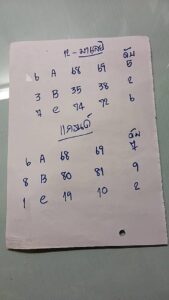 ฉัน
6 A 68 69 5
3 B 35 38 2
7 C 74 72 6
ฉัน
6 A 68 69 7
8 B 80 81 9
1 C 19 10 2